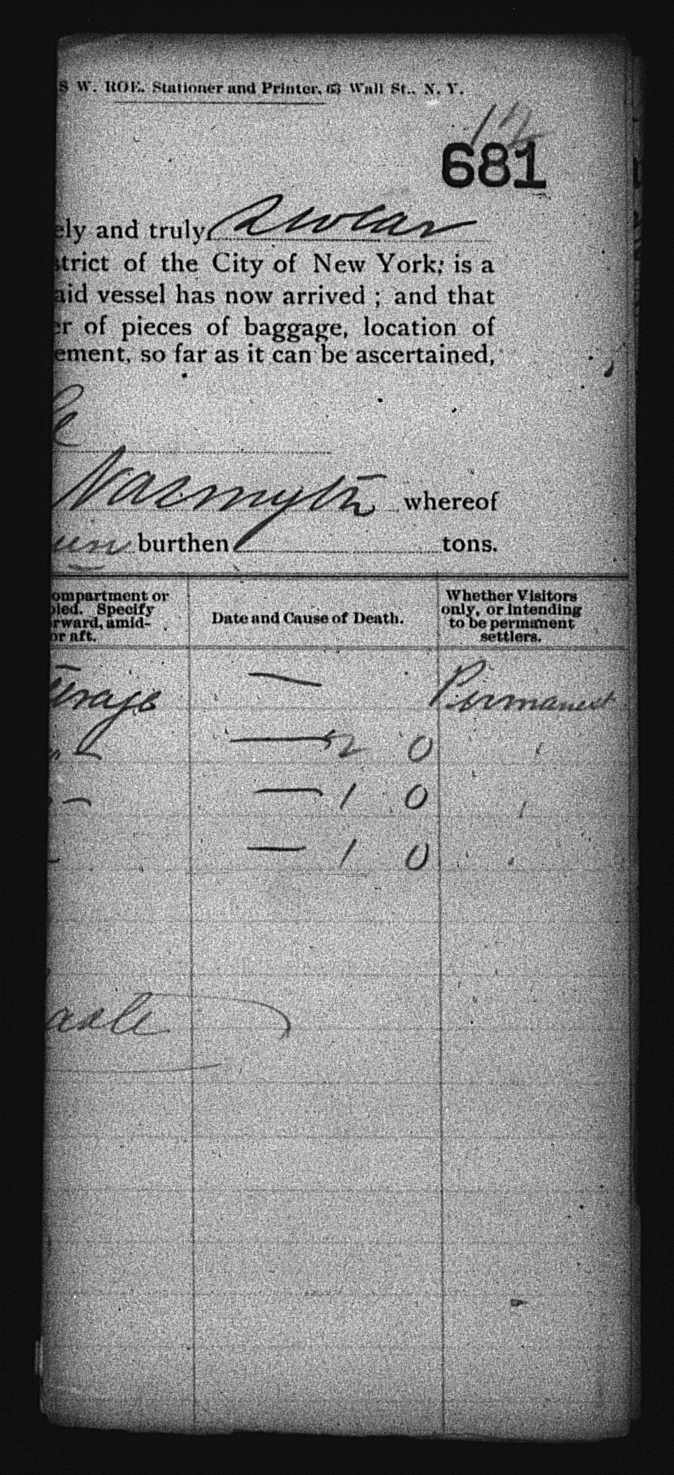 S W. ROE. Stationer and Printer, 63 Wall St., N. Y.
12
681
ely and truly swear
strict of the City of New York; is a
aid vessel has now arrived ; and that
er of pieces of baggage, location of
ement, so far as it can be ascertained,
Nasmyth whereof
burthen tons.
ompartment or
pied. Specify
rward, amid-
or aft.
Date and Cause of Death.
Whether Visitors
only, or intending
to be permanent
settlers.
erage — Permanent
" — — 2 0 "
— — 1 0 "
- — 1 0 "